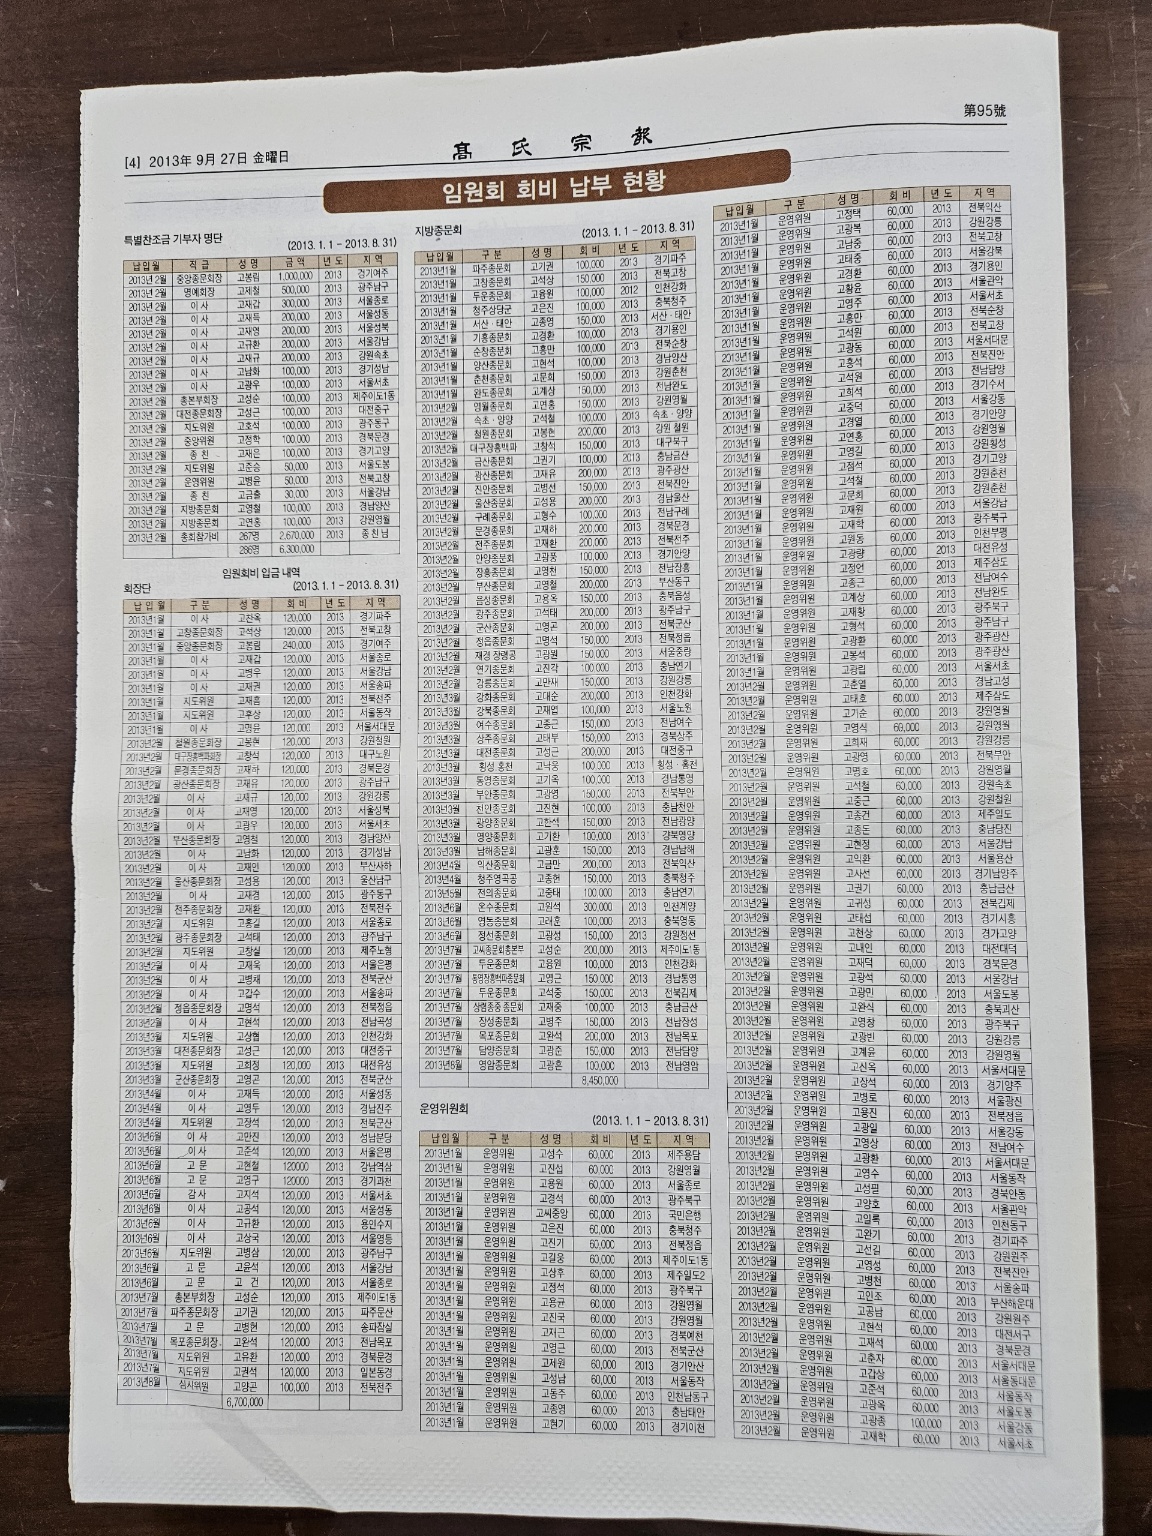 [4] 2013年 9月 27日 金曜日
高 氏 宗 報
第95號
임원회 회비 납부 현황
특별찬조금 기부자 명단
(2013. 1. 1 - 2013. 8. 31)
납입월 직 급 성 명 금 액 년 도 지 역
2013년 2월 중앙종문회장 고봉림 1,000,000 2013 경기여주
2013년 2월 명예회장 고재철 500,000 2013 광주남구
2013년 2월 이 사 고재갑 300,000 2013 서울종로
2013년 2월 이 사 고재득 200,000 2013 서울성동
2013년 2월 이 사 고재영 200,000 2013 서울성북
2013년 2월 이 사 고규환 200,000 2013 서울강남
2013년 2월 이 사 고재규 200,000 2013 강원속초
2013년 2월 이 사 고남화 100,000 2013 경기성남
2013년 2월 이 사 고광우 100,000 2013 서울서초
2013년 2월 총본부회장 고성순 100,000 2013 제주이도1동
2013년 2월 대전종문회장 고성근 100,000 2013 대전중구
2013년 2월 지도위원 고호석 100,000 2013 광주동구
2013년 2월 중앙위원 고정학 100,000 2013 경북문경
2013년 2월 종 친 고재은 100,000 2013 경기고양
2013년 2월 지도위원 고준승 50,000 2013 서울도봉
2013년 2월 운영위원 고병윤 50,000 2013 전북고창
2013년 2월 종 친 고금출 30,000 2013 서울강남
2013년 2월 지방종문회 고영철 100,000 2013 경남양산
2013년 2월 지방종문회 고연홍 100,000 2013 강원영월
2013년 2월 총회참가비 267명 2,670,000 2013 종친님
286명 6,300,000
임원회비 입금 내역
회장단
(2013. 1. 1 - 2013. 8. 31)
납입월 구 분 성 명 회 비 년 도 지 역
2013년1월 이 사 고찬옥 120,000 2013 경기파주
2013년1월 고창종문회장 고석상 120,000 2013 전북고창
2013년1월 중앙종문회장 고봉림 240,000 2013 경기여주
2013년1월 이 사 고재갑 120,000 2013 서울종로
2013년1월 이 사 고병우 120,000 2013 서울강남
2013년1월 이 사 고재권 120,000 2013 서울송파
2013년1월 지도위원 120,000 2013 전북전주
2013년1월 지도위원 고후상 120,000 2013 서울동작
2013년1월 이 사 120,000 2013 서울서대문
2013년2월 철원종문회장 고봉현 120,000 2013 강원철원
2013년2월 고창석 120,000 2013 대구노원
2013년2월 문경종문회장 고재하 120,000 2013 경북문경
2013년2월 광산종문회장 고재유 120,000 2013 광주남구
2013년2월 이 사 고재규 120,000 2013 강원강릉
2013년2월 이 사 고재영 120,000 2013 서울성북
2013년2월 이 사 고광우 120,000 2013 서울서초
2013년2월 부산종문회장 고영철 120,000 2013 경남양산
2013년2월 이 사 고남화 120,000 2013 경기성남
2013년2월 이 사 고재인 120,000 2013 부산사하
2013년2월 울산종문회장 고성용 120,000 2013 울산남구
2013년2월 이 사 고재경 120,000 2013 광주동구
2013년2월 전주종문회장 고재환 120,000 2013 전북전주
2013년2월 지도위원 고홍길 120,000 2013 서울종로
2013년2월 광주종문회장 고석태 120,000 2013 광주남구
2013년2월 지도위원 고창실 120,000 2013 제주노형
2013년2월 이 사 고재욱 120,000 2013 서울은평
2013년2월 이 사 고병채 120,000 2013 전북군산
2013년2월 이 사 고갑수 120,000 2013 서울송파
2013년2월 정읍종문회장 고명석 120,000 2013 전북정읍
2013년2월 이 사 고현석 120,000 2013 전남곡성
2013년3월 지도위원 고상협 120,000 2013 인천강화
2013년3월 대전종문회장 고성근 120,000 2013 대전중구
2013년3월 지도위원 고희정 120,000 2013 대전유성
2013년3월 군산종문회장 고영곤 120,000 2013 전북군산
2013년4월 이 사 고재득 120,000 2013 서울성동
2013년4월 이 사 고영두 120,000 2013 경남진주
2013년4월 지도위원 고창석 120,000 2013 전북군산
2013년6월 이 사 고만진 120,000 2013 성남분당
2013년6월 이 사 고준석 120,000 2013 서울은평
2013년6월 고 문 고현철 120000 2013 강남역삼
2013년6월 고 문 고영구 120000 2013 경기과천
2013년6월 감 사 고지석 120,000 2013 서울서초
2013년6월 이 사 고공석 120,000 2013 서울성동
2013년6월 이 사 고규환 120,000 2013 용인수지
2013년6월 이 사 고상국 120,000 2013 서울영등
2013년6월 지도위원 고병삼 120,000 2013 광주남구
2013년6월 고 문 고윤석 120,000 2013 서울강남
2013년6월 고 문 고 건 120,000 2013 서울종로
2013년7월 총본부회장 고성순 120,000 2013 제주이도1동
2013년7월 파주종문회장 고기권 120,000 2013 파주문산
2013년7월 고 문 고병헌 120,000 2013 송파잠실
2013년7월 목포종문회장 고완석 120,000 2013 전남목포
2013년7월 지도위원 고유환 120,000 2013 경북문경
2013년7월 지도위원 고권석 120,000 2013 일본동경
2013년8월 심사위원 고양곤 100,000 2013 전북전주
6,700,000
지방종문회
(2013. 1. 1 - 2013. 8. 31)
납입월 구 분 성 명 회 비 년 도 지 역
2013년1월 파주종문회 고기권 100,000 2013 경기파주
2013년1월 고창종문회 고석상 150,000 2013 전북고창
2013년1월 두문종문회 고용원 100,000 2012 인천강화
2013년1월 청주상당군 고은진 100,000 2013 충북청주
2013년1월 서산 · 태안 고종영 150,000 2013 서산 · 태안
2013년1월 기흥종문회 고경환 100,000 2013 경기용인
2013년1월 순창종문회 고흥만 100,000 2013 전북순창
2013년1월 양산종문회 고현석 100,000 2013 경남양산
2013년1월 춘천종문회 고문희 150,000 2013 강원춘천
2013년1월 완도종문회 고계상 150,000 2013 전남완도
2013년2월 영월종문회 고연홍 150,000 2013 강원영월
2013년2월 속초 · 양양 고석철 100,000 2013 속초 · 양양
2013년2월 철원종문회 고봉현 200,000 2013 강원 철원
2013년2월 대구장흥백파 고창석 150,000 2013 대구북구
2013년2월 금산종문회 고권기 100,000 2013 충남금산
2013년2월 광산종문회 고재유 200,000 2013 광주광산
2013년2월 진안종문회 고병선 150,000 2013 전북진안
2013년2월 울산종문회 고성용 200,000 2013 경남울산
2013년2월 구례종문회 고형수 100,000 2013 전남구례
2013년2월 문경종문회 고재하 200,000 2013 경북문경
2013년2월 전주종문회 고재환 200,000 2013 전북전주
2013년2월 안양종문회 고광풍 100,000 2013 경기안양
2013년2월 장흥종문회 고영천 150,000 2013 전남장흥
2013년2월 부산종문회 고영철 200,000 2013 부산동구
2013년2월 음성종문회 고용옥 150,000 2013 충북음성
2013년2월 광주종문회 고석태 200,000 2013 광주남구
2013년2월 군산종문회 고영곤 200,000 2013 전북군산
2013년2월 정읍종문회 고명석 150,000 2013 전북정읍
2013년2월 재경 장령공 고광원 150,000 2013 서울중랑
2013년2월 연기종문회 고진각 100,000 2013 충남연기
2013년2월 강릉종문회 고만재 150,000 2013 강원강릉
2013년3월 강화종문회 고대순 200,000 2013 인천강화
2013년3월 강북종문회 고재업 100,000 2013 서울노원
2013년3월 여수종문회 고종근 150,000 2013 전남여수
2013년3월 상주종문회 고태부 150,000 2013 경북상주
2013년3월 대전종문회 고성근 200,000 2013 대전중구
2013년3월 횡성 홍천 고낙웅 100,000 2013 횡성 · 홍천
2013년3월 통영종문회 고기옥 100,000 2013 경남통영
2013년3월 부안종문회 고광영 150,000 2013 전북부안
2013년3월 천안종문회 고진현 100,000 2013 충남천안
2013년3월 광양종문회 고한석 150,000 2013 전남광양
2013년3월 영양종문회 고기환 100,000 2013 경북영양
2013년3월 남해종문회 고광훈 150,000 2013 경남남해
2013년4월 익산종문회 고금만 200,000 2013 전북익산
2013년4월 청주영곡공 고종현 150,000 2013 충북청주
2013년5월 전의종문회 고중태 100,000 2013 충남연기
2013년6월 온수종문회 고원석 300,000 2013 인천계양
2013년6월 영동종문회 고래훈 100,000 2013 충북영동
2013년6월 정선종문회 고광성 150,000 2013 강원정선
2013년7월 고씨종문회총본부 고성순 200,000 2013 제주이도1동
2013년7월 두문종문회 고용원 100,000 2013 인천강화
2013년7월 고영근 150,000 2013 경남통영
2013년7월 두문종문회 고석중 150,000 2013 전북김제
2013년7월 고재중 100,000 2013 충남금산
2013년7월 장성종문회 고병주 150,000 2013 전남장성
2013년7월 목포종문회 고완석 200,000 2013 전남목포
2013년7월 담양종문회 고광훈 150,000 2013 전남담양
2013년8월 영암종문회 고광훈 100,000 2013 전남영암
8,450,000
운영위원회
(2013. 1. 1 - 2013. 8. 31)
납입월 구 분 성 명 회 비 년 도 지 역
2013년1월 운영위원 고성수 60,000 2013 제주용담
2013년1월 운영위원 고진섭 60,000 2013 강원영월
2013년1월 운영위원 고용원 60,000 2013 서울종로
2013년1월 운영위원 고경석 60,000 2013 광주북구
2013년1월 운영위원 고씨중앙 60,000 2013 국민은행
2013년1월 운영위원 고은진 60,000 2013 충북청주
2013년1월 운영위원 고진기 60,000 2013 전북정읍
2013년1월 운영위원 고길웅 60,000 2013 제주이도1동
2013년1월 운영위원 고상후 60,000 2013 제주일도2
2013년1월 운영위원 고정석 60,000 2013 광주북구
2013년1월 운영위원 고용균 60,000 2013 강원영월
2013년1월 운영위원 고진국 60,000 2013 강원영월
2013년1월 운영위원 고재근 60,000 2013 경북예천
2013년1월 운영위원 고영근 60,000 2013 전북군산
2013년1월 운영위원 고제원 60,000 2013 경기안산
2013년1월 운영위원 고성남 60,000 2013 서울동작
2013년1월 운영위원 고동주 60,000 2013 인천남동구
2013년1월 운영위원 고종영 60,000 2013 충남태안
2013년1월 운영위원 고현기 60,000 2013 경기이천
납입월 구 분 성 명 회 비 년 도 지 역
2013년1월 운영위원 고정택 60,000 2013 전북익산
2013년1월 운영위원 고광복 60,000 2013 강원강릉
2013년1월 운영위원 고남중 60,000 2013 전북고창
2013년1월 운영위원 고태중 60,000 2013 서울강북
2013년1월 운영위원 고경환 60,000 2013 경기용인
2013년1월 운영위원 고황윤 60,000 2013 서울관악
2013년1월 운영위원 고영주 60,000 2013 서울서초
2013년1월 운영위원 고흥만 60,000 2013 전북순창
2013년1월 운영위원 고석원 60,000 2013 전북고창
2013년1월 운영위원 고광동 60,000 2013 서울서대문
2013년1월 운영위원 고홍석 60,000 2013 전북진안
2013년1월 운영위원 고석원 60,000 2013 전남담양
2013년1월 운영위원 고희석 60,000 2013 경기수서
2013년1월 운영위원 고중덕 60,000 2013 서울강동
2013년1월 운영위원 고경열 60,000 2013 경기안양
2013년1월 운영위원 고연홍 60,000 2013 강원영월
2013년1월 운영위원 고영길 60,000 2013 강원횡성
2013년1월 운영위원 고점석 60,000 2013 경기고양
2013년1월 운영위원 고석철 60,000 2013 강원춘천
2013년1월 운영위원 고문희 60,000 2013 강원춘천
2013년1월 운영위원 고재원 60,000 2013 서울강남
2013년1월 운영위원 고재학 60,000 2013 광주북구
2013년1월 운영위원 고원동 60,000 2013 인천부평
2013년1월 운영위원 고광량 60,000 2013 대전유성
2013년1월 운영위원 고정언 60,000 2013 제주삼도
2013년1월 운영위원 고종근 60,000 2013 전남여수
2013년1월 운영위원 고계상 60,000 2013 전남완도
2013년1월 운영위원 고재황 60,000 2013 광주북구
2013년1월 운영위원 고형석 60,000 2013 광주남구
2013년1월 운영위원 고광환 60,000 2013 광주광산
2013년1월 운영위원 고봉석 60,000 2013 광주광산
2013년1월 운영위원 고광립 60,000 2013 서울서초
2013년2월 운영위원 고춘열 60,000 2013 경남고성
2013년2월 운영위원 고태호 60,000 2013 제주삼도
2013년2월 운영위원 고기순 60,000 2013 강원영월
2013년2월 운영위원 고영식 60,000 2013 강원영월
2013년2월 운영위원 고희재 60,000 2013 강원강릉
2013년2월 운영위원 고광영 60,000 2013 전북부안
2013년2월 운영위원 고병호 60,000 2013 강원영월
2013년2월 운영위원 고석철 60,000 2013 강원속초
2013년2월 운영위원 고중근 60,000 2013 강원철원
2013년2월 운영위원 고종건 60,000 2013 제주일도
2013년2월 운영위원 고종돈 60,000 2013 충남당진
2013년2월 운영위원 고현정 60,000 2013 서울강남
2013년2월 운영위원 고익환 60,000 2013 서울용산
2013년2월 운영위원 고사선 60,000 2013 경기남양주
2013년2월 운영위원 고권기 60,000 2013 충남금산
2013년2월 운영위원 고귀성 60,000 2013 전북김제
2013년2월 운영위원 고태섭 60,000 2013 경기시흥
2013년2월 운영위원 고천상 60,000 2013 경기고양
2013년2월 운영위원 고내인 60,000 2013 대전대덕
2013년2월 운영위원 고재덕 60,000 2013 경북문경
2013년2월 운영위원 고광석 60,000 2013 서울강남
2013년2월 운영위원 고광민 60,000 2013 서울도봉
2013년2월 운영위원 고완식 60,000 2013 충북괴산
2013년2월 운영위원 고영창 60,000 2013 광주북구
2013년2월 운영위원 고광빈 60,000 2013 강원강릉
2013년2월 운영위원 고계윤 60,000 2013 강원영월
2013년2월 운영위원 고신옥 60,000 2013 서울서대문
2013년2월 운영위원 고상석 60,000 2013 경기양주
2013년2월 운영위원 고병로 60,000 2013 서울광진
2013년2월 운영위원 고용진 60,000 2013 전북정읍
2013년2월 운영위원 고광일 60,000 2013 서울강동
2013년2월 운영위원 고영상 60,000 2013 전남여수
2013년2월 운영위원 고광환 60,000 2013 서울서대문
2013년2월 운영위원 고영수 60,000 2013 서울동작
2013년2월 운영위원 고성필 60,000 2013 경북안동
2013년2월 운영위원 고양호 60,000 2013 서울관악
2013년2월 운영위원 고일록 60,000 2013 인천동구
2013년2월 운영위원 고완기 60,000 2013 경기파주
2013년2월 운영위원 고선길 60,000 2013 강원원주
2013년2월 운영위원 고영성 60,000 2013 전북진안
2013년2월 운영위원 고병천 60,000 2013 서울송파
2013년2월 운영위원 고인조 60,000 2013 부산해운대
2013년2월 운영위원 고공남 60,000 2013 강원원주
2013년2월 운영위원 고현석 60,000 2013 대전서구
2013년2월 운영위원 고재석 60,000 2013 경북문경
2013년2월 운영위원 고춘자 60,000 2013 서울서대문
2013년2월 운영위원 고갑상 60,000 2013 서울동대문
2013년2월 운영위원 고준석 60,000 2013 서울동작
2013년2월 운영위원 고광옥 60,000 2013 서울도봉
2013년2월 운영위원 고광종 100,000 2013 서울강동
2013년2월 운영위원 고재학 60,000 2013 서울서초